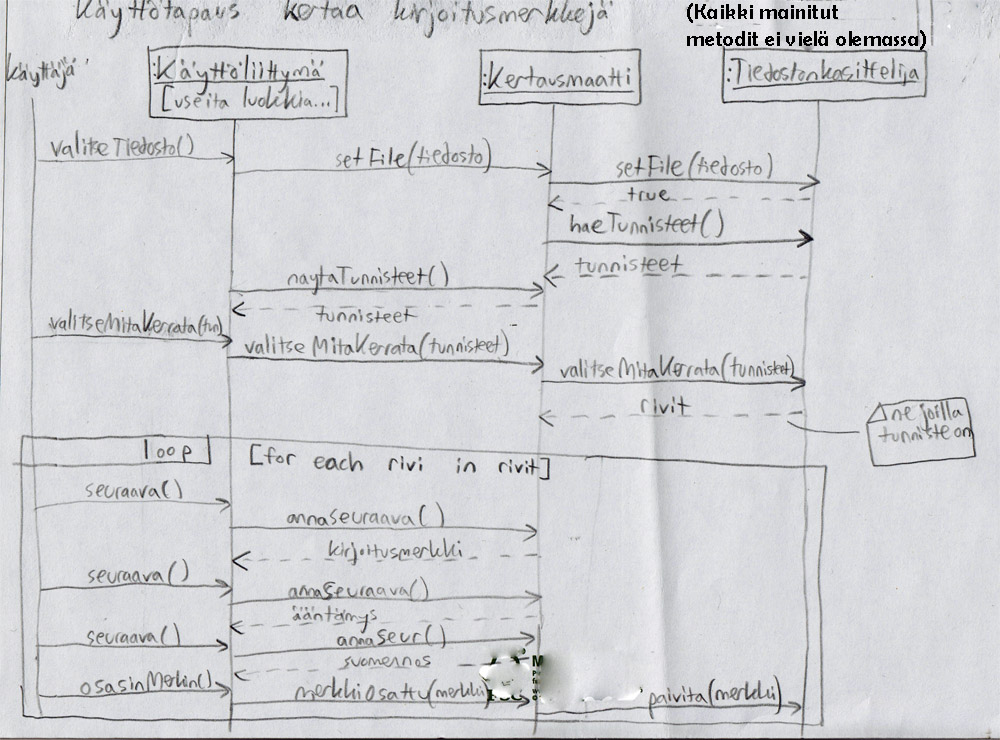 Käyttötapaus kertaa kirjoitusmerkkejä
(Kaikki mainitut
metodit ei vielä olemassa)
Käyttäjä
:Käyttöliittymä
[useita luokkia...]
:Kertausmaatti
:Tiedostonkäsittelija
valitseTiedosto()
setFile(tiedosto)
setFile(tiedosto)
true
haeTunnisteet()
tunnisteet
naytaTunnisteet()
tunnisteet
valitseMitaKerrata(tun)
valitseMitaKerrata(tunnisteet)
valitseMitaKerrata(tunnisteet)
rivit
ne joilla
tunniste on
loop
[for each rivi in rivit]
seuraava()
annaSeuraava()
kirjoitusmerkki
seuraava()
annaSeuraava()
ääntämys
seuraava()
annaSeur()
suomennos
osasinMerkin()
merkkiOsattu(merkki)
paivita(merkki)